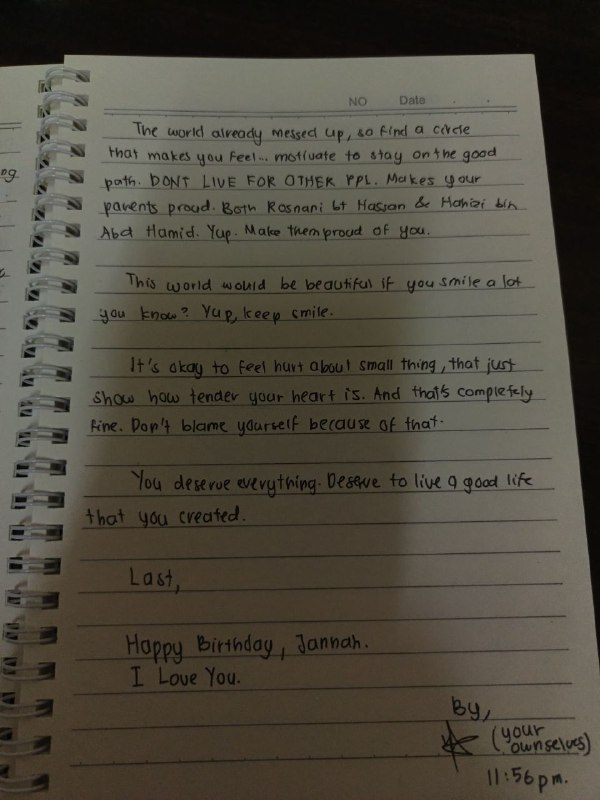 NO Date
The world already messed up, so find a circle
that makes you feel... motivate to stay on the good
path. DONT LIVE FOR OTHER PPL. Makes your
parents proud. Both Rosnani bt Hassan & Mahizi bin
Abd Hamid. Yup. Make them proud of you.
This world would be beautiful if you smile a lot
you know? Yup, keep smile.
It's okay to feel hurt about small thing, that just
show how tender your heart is. And that's completely
fine. Don't blame yourself because of that.
You deserve everything. Deserve to live a good life
that you created.
Last,
Happy Birthday, Jannah.
I Love You.
By,
(your
ownselves)
11:56pm.